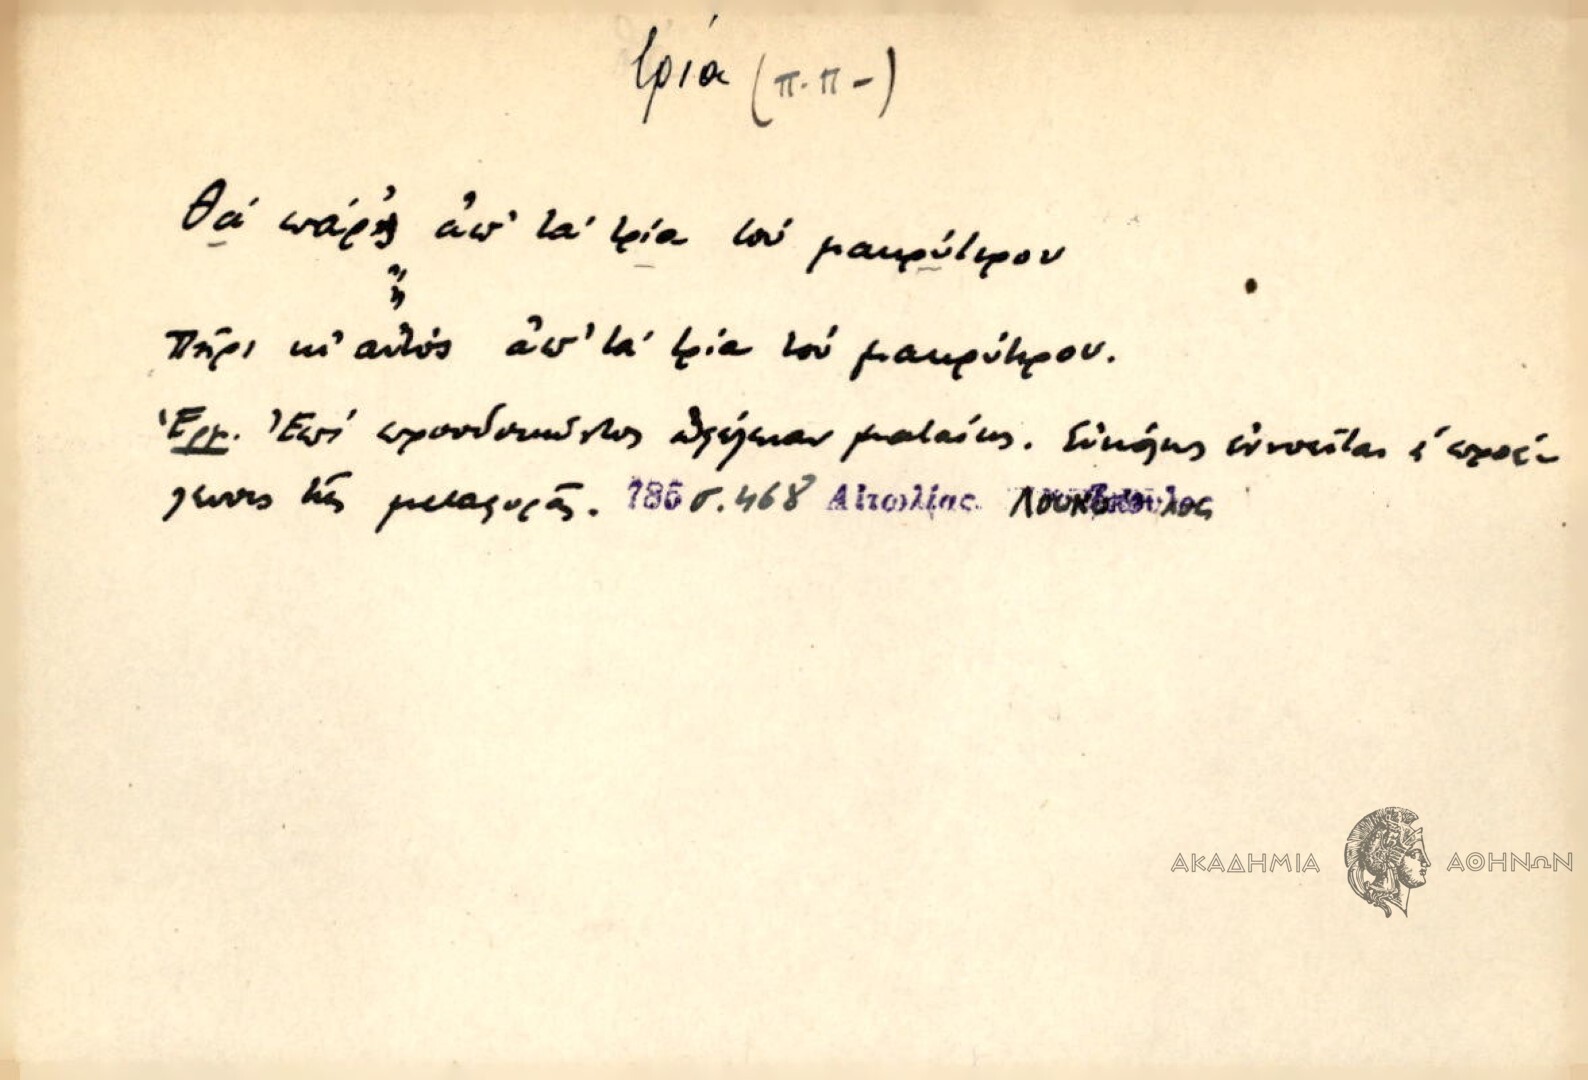 τρία (π.π-)
Θά πάρῃς ἀπ' τά τρία τού μακρύτερου
ἤ
Πῆρι κι' αὐτός ἀπ' τά τρία τού μακρύτερου.
Ἑρμ. Ἐπί προσδοκῶντος ὠφέλειαν ματαίως. Εὐκόλως ἐννοεῖται ἡ προέ-
λευσις τῆς μεταφορᾶς. 786 σ. 468 Αἰτωλίας Λουκόπουλος
ΑΚΑΔΗΜΙΑ ΑΘΗΝΩΝ